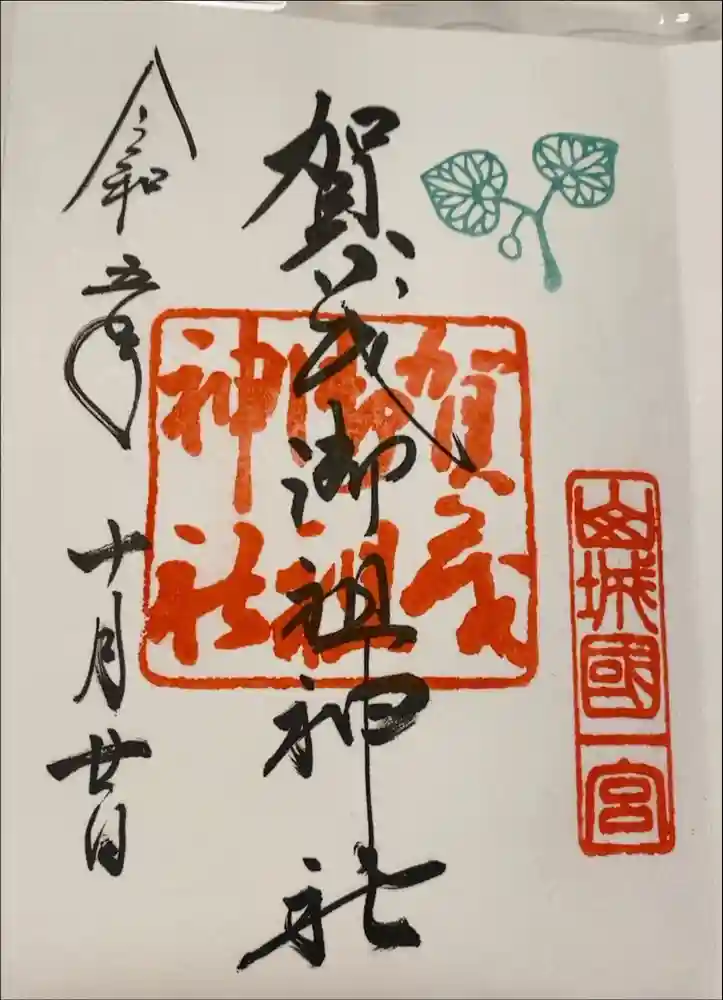 山城國一宮
賀茂御祖神社
賀茂
御祖
神社
令和五年 十月廿日